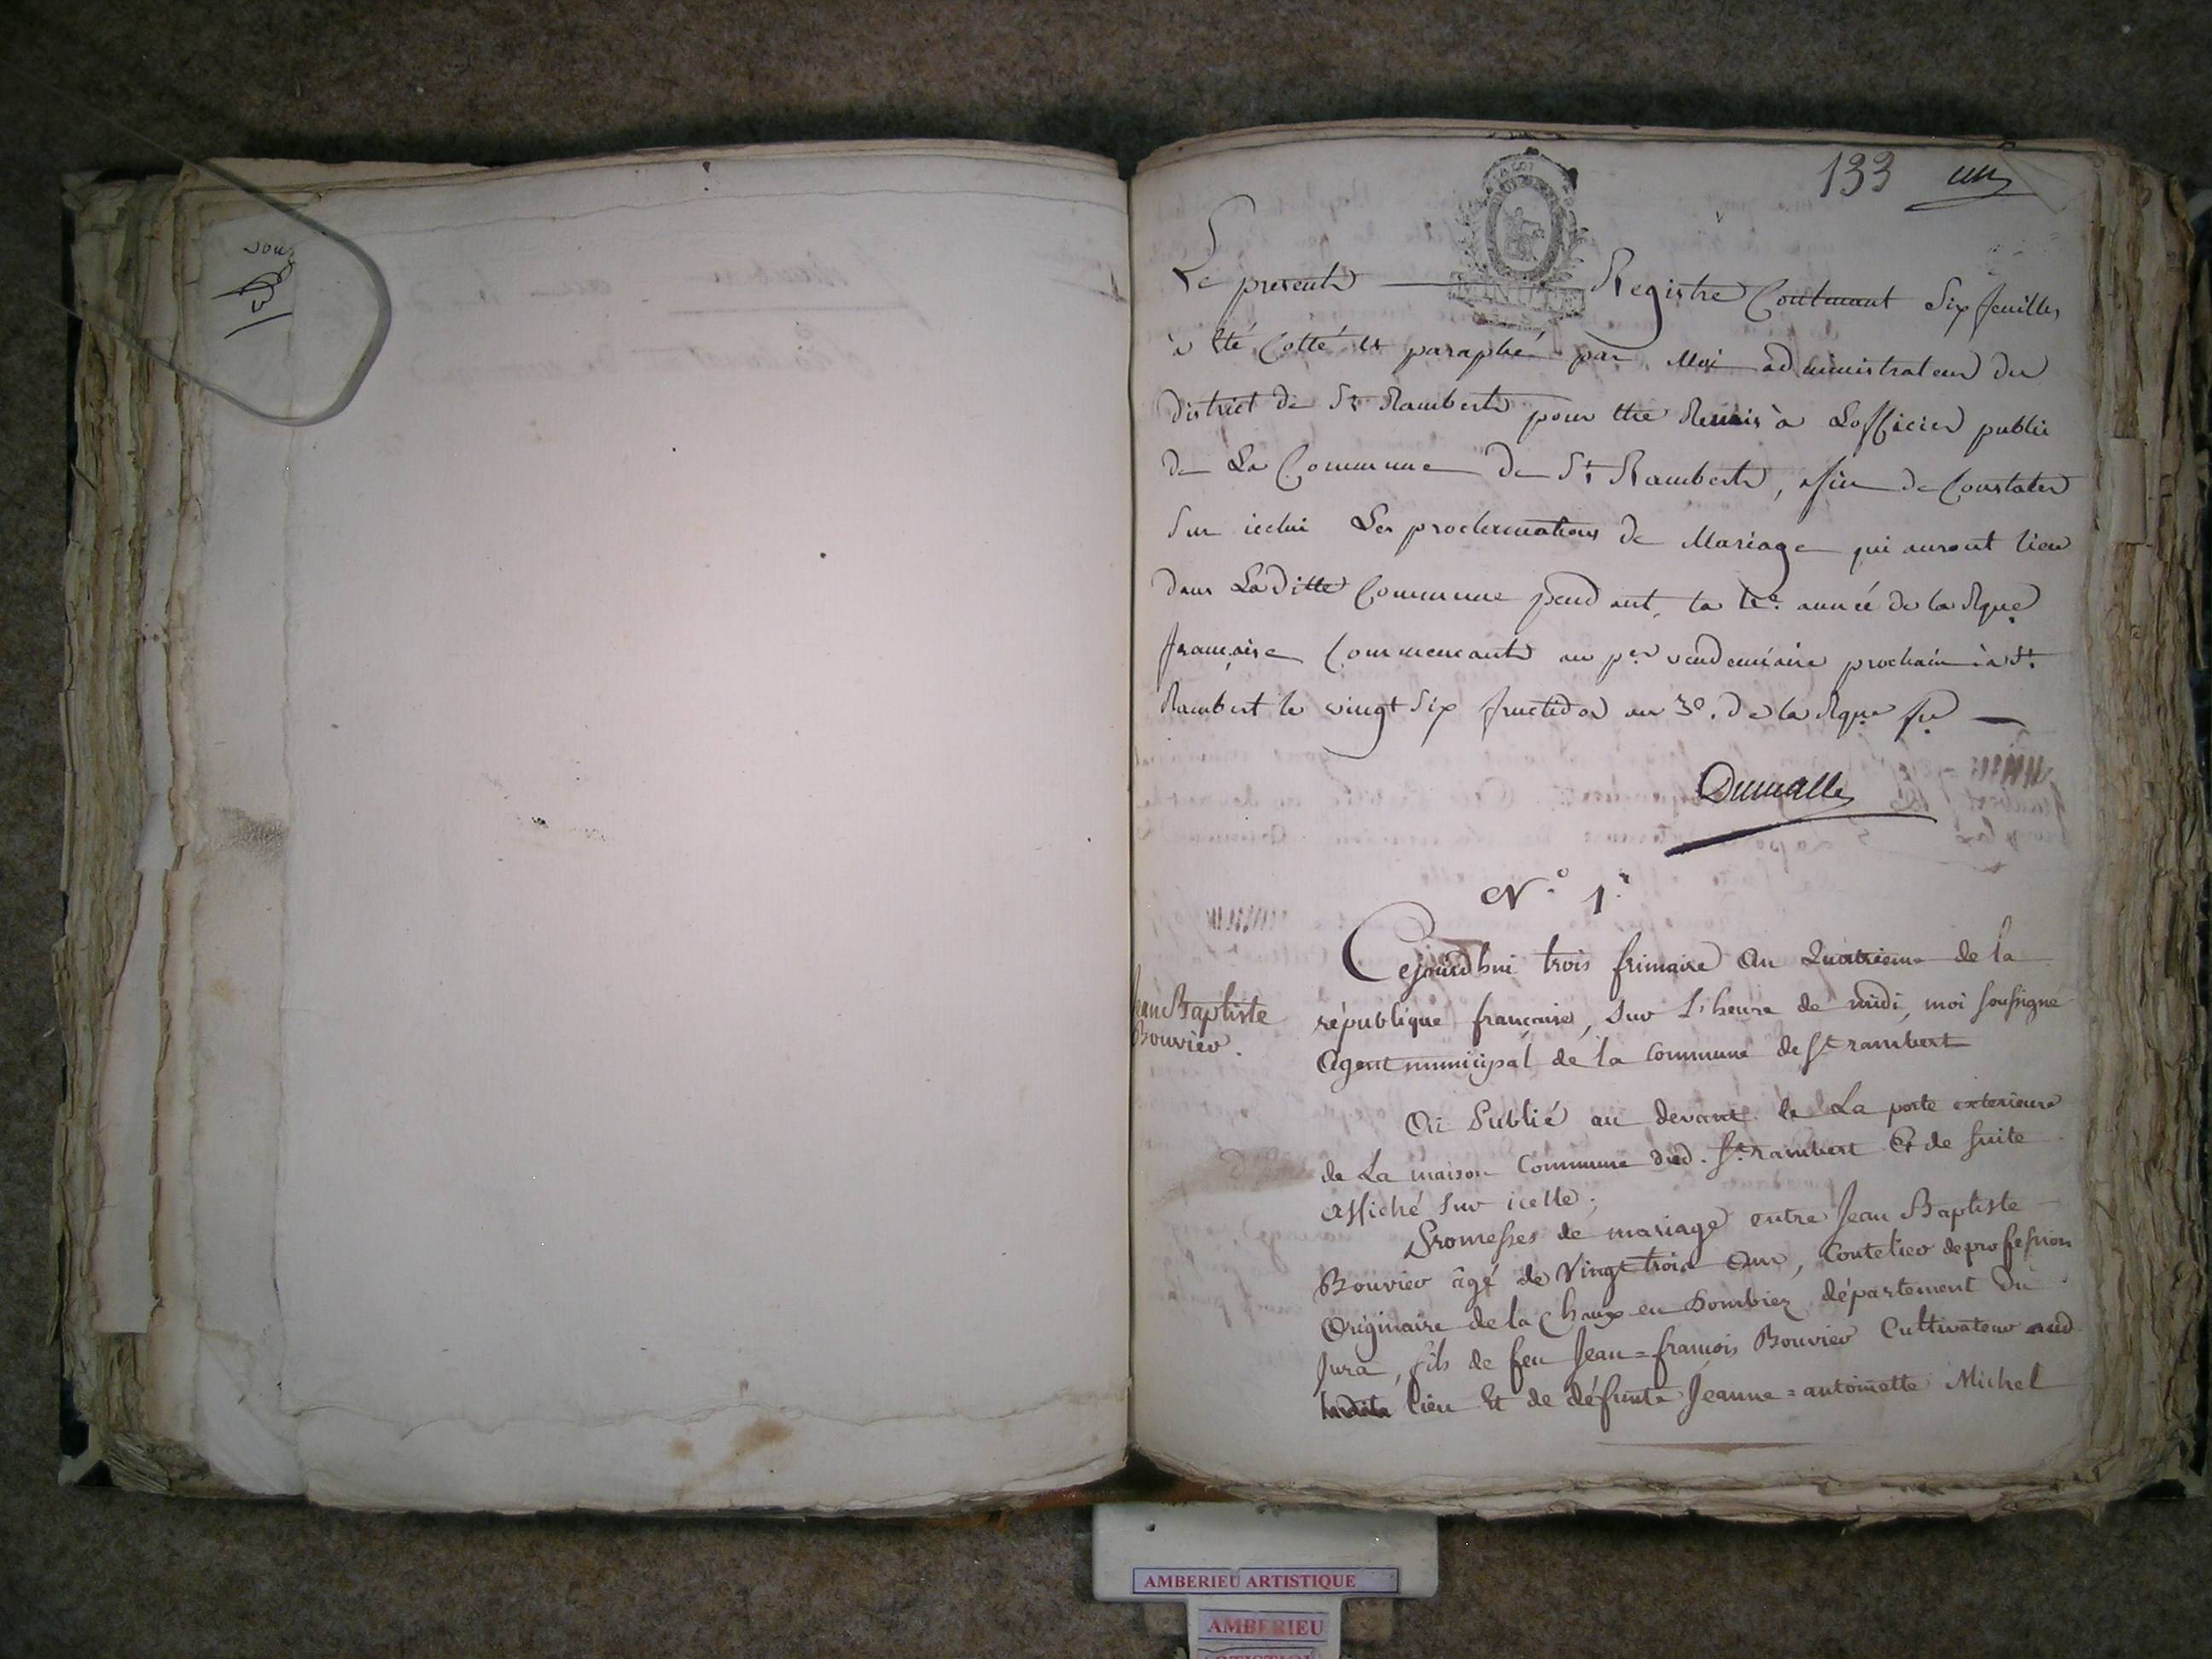 133 un
MINUTE
Le present Registre Contenant Six feuilles
à été Cotté et paraphé par Moi administrateur du
district de St Rambert pour être Remis à Lofficier public
de La Commune de St Rambert, afin de Constater
Sur icelui Les proclamations de Mariage qui auront lieu
dans Laditte Commune pendant, la 4e. année de la Rque
française Commencant au per vendemiaire prochain à St.
Rambert le vingt Six fructidor an 3e. de la Rque fse
Dumalle
N.o 1.r
Cejourdhui trois frimaire an Quatrieme de la
Jean Baptiste
Bouvier.
république française, Sur L'heure de midi, moi soussigné
Agent municipal de la Commune de St rambert
Ai Publié au devant de La porte exterieure
de La maison Commune dud. St. rambert Et de suite
affiché Sur icelle;
Promesses de mariage entre Jean Baptiste
Bouvier âgé de Vingt trois Ans, Coutelier de profession
Originaire de la Chaux en Dombiez département du
Jura, fils de feu Jean=françois Bouvier Cultivateur aud
lieu Et de défunte Jeanne=antoinette Michel
AMBERIEU ARTISTIQUE
AMBERIEU
ARTISTIQUE